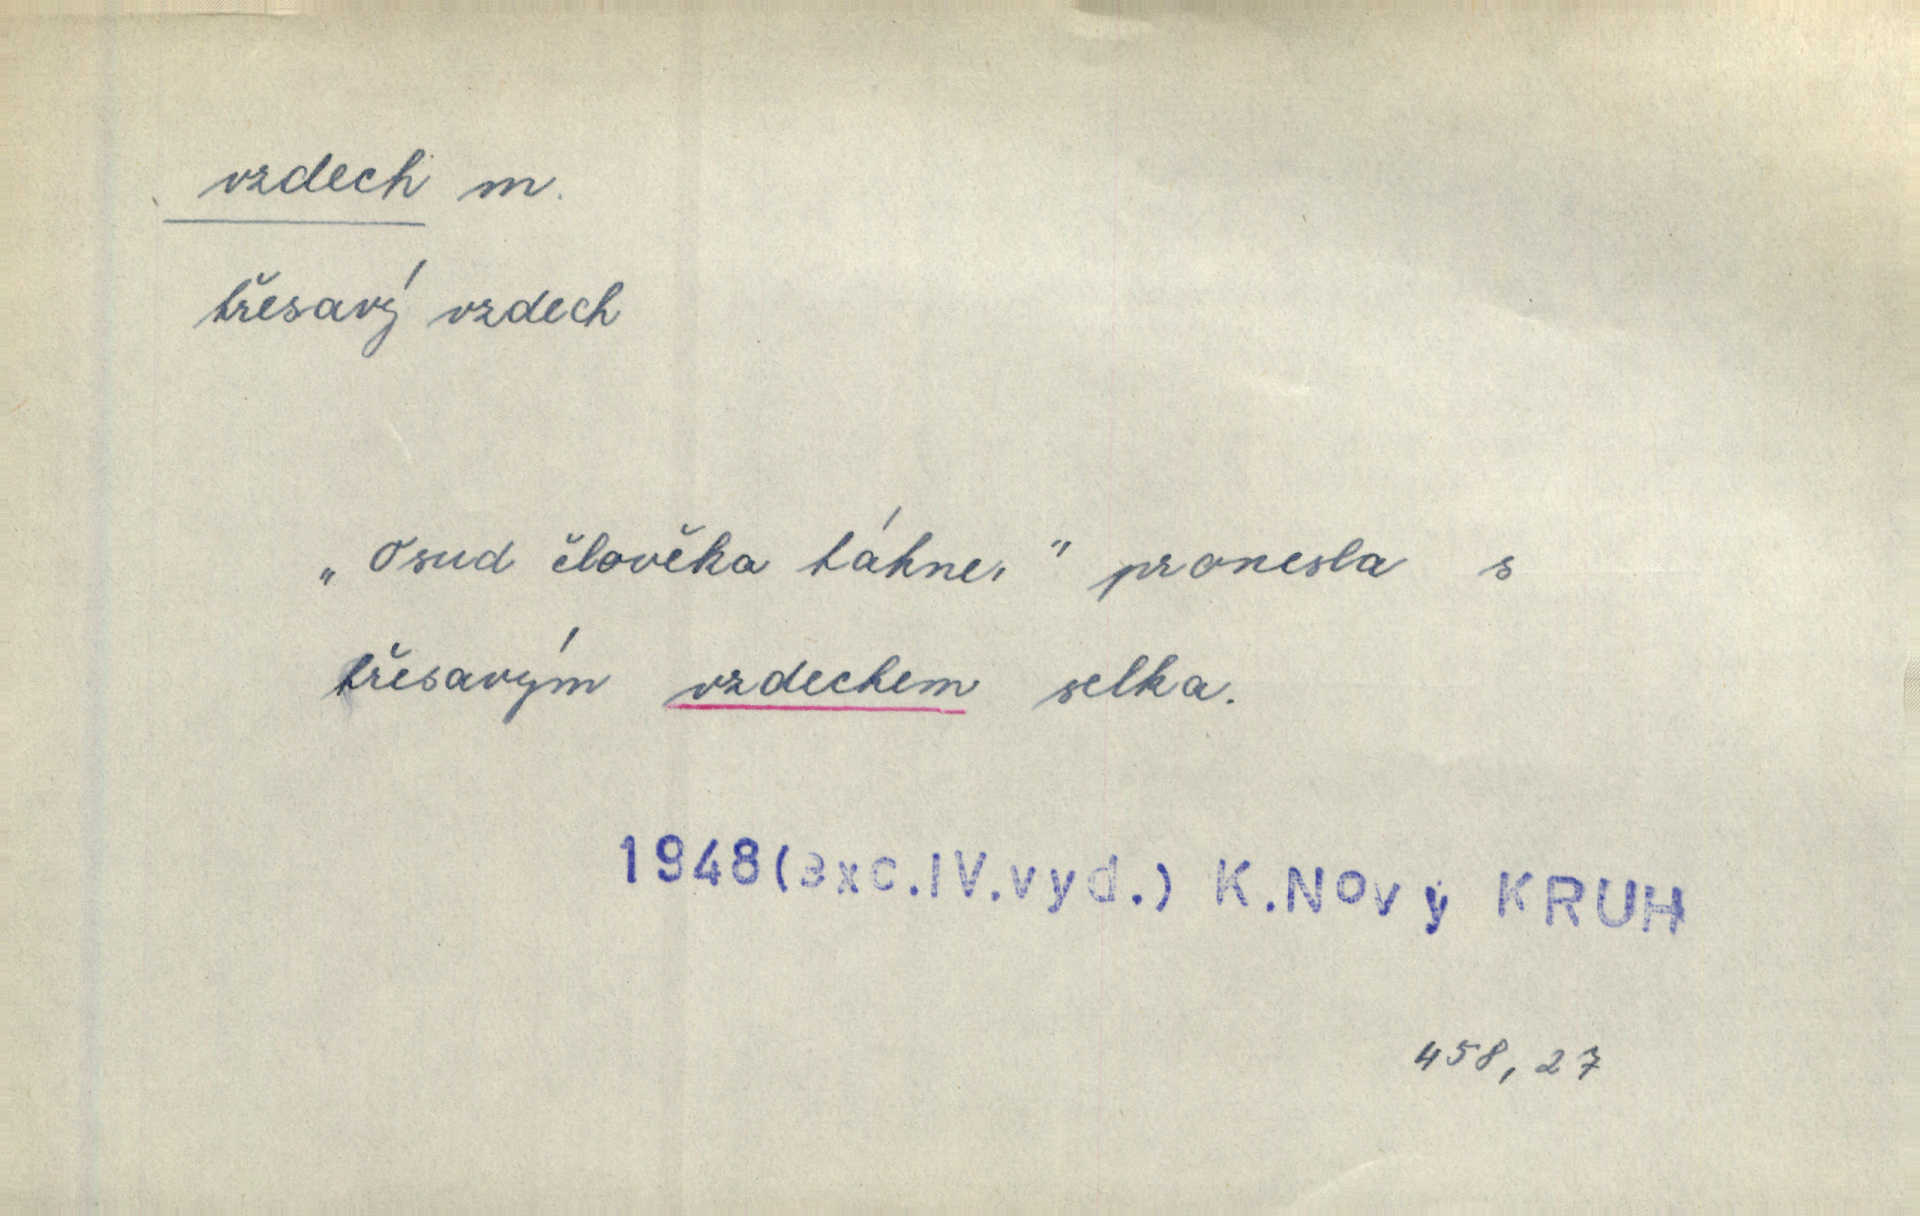 vzdech m.
třesavý vzdech
„Osud člověka táhne," pronesla s
třesavým vzdechem selka.
1948(exc.IV.vyd.) K.Nový KRUH
458, 27